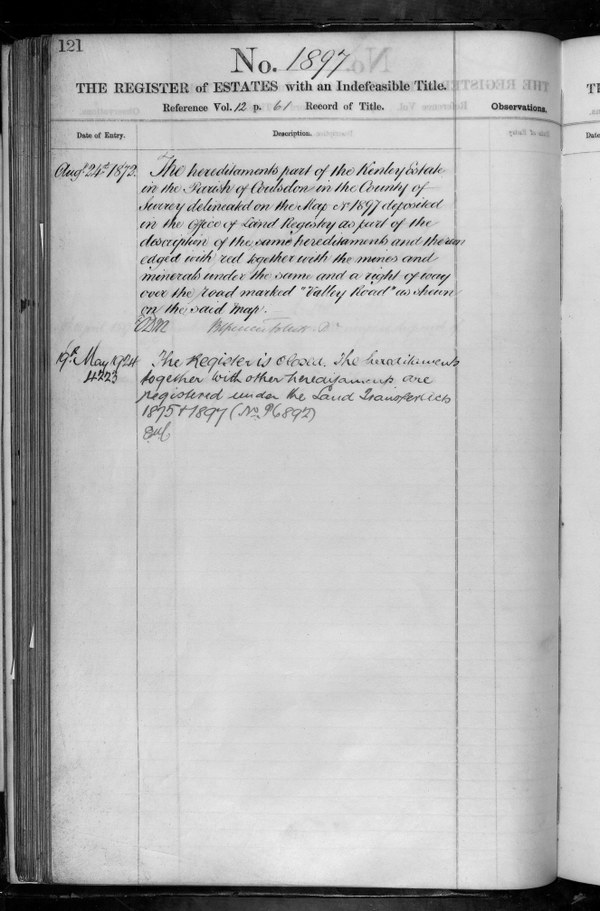 121
No. 1897
THE REGISTER of ESTATES with an Indefeasible Title.
Reference Vol. 12 p. 61 Record of Title.
Observations.
Date of Entry.
Description.
Augt 24th 1872.
The hereditaments part of the Kenley Estate
in the Parish of Coulsdon in the County of
Surrey delineated on the Map No 1897 deposited
in the Office of Land Registry as part of the
description of the same hereditaments and thereon
edged with red together with the mines and
minerals under the same and a right of way
over the road marked "Valley Road" as shewn
on the said Map.
19th May 1924
4223
The Register is closed. The hereditaments
together with other hereditaments are
registered under the Land Transfer Acts
1875 & 1897 (No P6892)
TH
Date